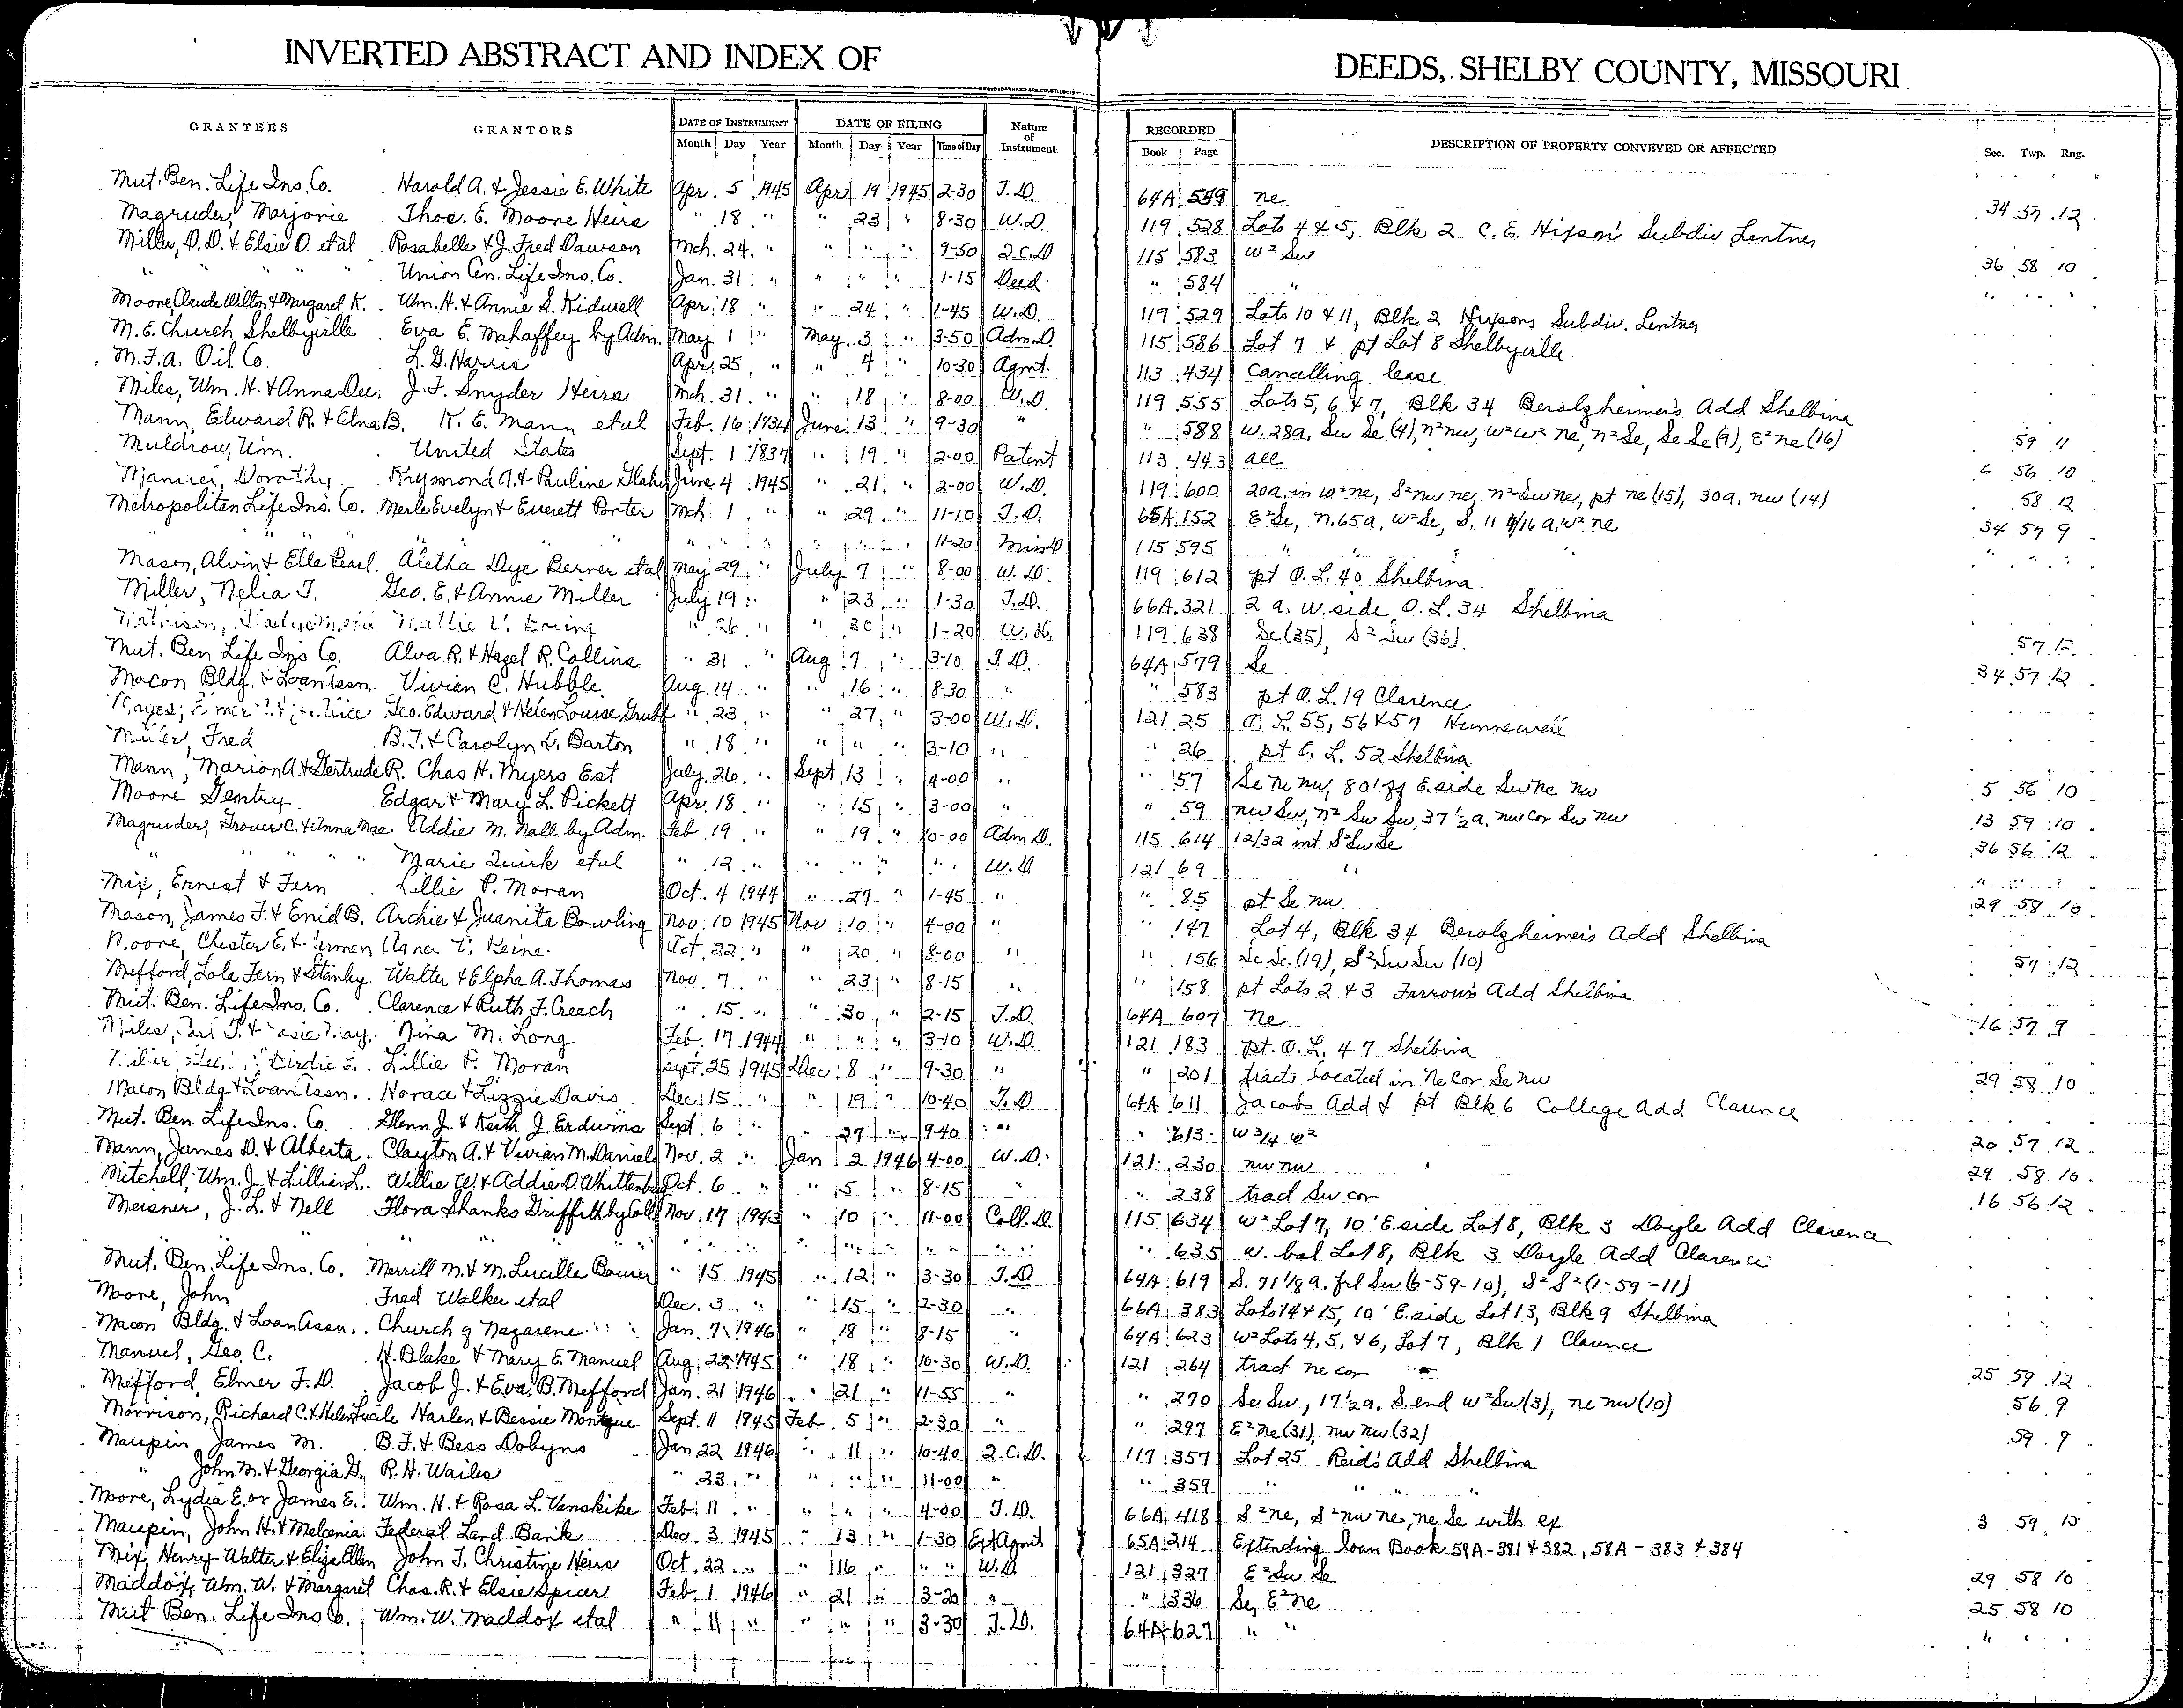 INVERTED ABSTRACT AND INDEX OF DEEDS, SHELBY COUNTY, MISSOURI
GEO. D. BARNARD STA. CO. ST. LOUIS
GRANTEES GRANTORS DATE OF INSTRUMENT DATE OF FILING Nature of Instrument RECORDED DESCRIPTION OF PROPERTY CONVEYED OR AFFECTED Sec. Twp. Rng.
Month Day Year Month Day Year Time of Day Book Page
Mut. Ben. Life Ins. Co. Harold A. & Jessie E. White Apr. 5 1945 Apr 19 1945 2-30 T.D. 64A 559 ne 34 57 12
Magruder, Marjorie Thos. E. Moore Heirs " 18 " " 23 " 8-30 W.D. 119 528 Lots 4 & 5, Blk 2 C. E. Hixson Subdiv Lentner
Miller, O.D. & Elsie O. etal Rosabelle & J. Fred Dawson Mch. 24 " " " " 9-50 Q.C.D 115 583 W² Sw 36 58 10
" " " " Union Cen. Life Ins. Co. Jan. 31 " " " " 1-15 Deed " 584 " " " "
Moore, Claude Wilton & Margaret K. Wm. H. & Annie S. Kidwell Apr. 18 " " 24 " 1-45 W.D. 119 529 Lots 10 & 11, Blk 2 Hixsons Subdiv. Lentner
M. E. Church Shelbyville Eva E. Mahaffey by Adm. May 1 " May 3 " 3-50 Adm.D. 115 586 Lot 7 & pt Lot 8 Shelbyville
M.F.A. Oil Co. L. G. Harris Apr. 25 " " 4 " 10-30 Agmt. 113 434 Cancelling lease
Miles, Wm. H. & Anna Dee. J. F. Snyder Heirs Mch. 31 " " 18 " 8-00 W.D. 119 555 Lots 5, 6 & 7, Blk 34 Berolzheimer's Add Shelbina
Mann, Edward R. & Edna B. K. E. Mann etal Feb. 16 1934 June 13 " 9-30 " " 588 W. 28a. Sw Se (4), n² nw, W² W² ne, n² Se, Se Se (9), E² ne (16) 59 11
Muldrow, Wm. United States Sept. 1 1837 " 19 " 2-00 Patent 113 443 all 6 56 10
Manuel, Dorothy Raymond A. & Pauline June 4 1945 " 21 " 2-00 W.D. 119 600 20a. in W² ne, S² nw ne, n² Sw ne, pt ne (15), 30a. nw (14) 58 12
Metropolitan Life Ins. Co. Merle Evelyn & Everett Porter Mch. 1 " " 29 " 11-10 T.D. 65A 152 E² Se, n. 65a. W² Se, S. 11 W² ne 34 57 9
" " " " " " " " " " " " 11-20 Min D 115 595 " " " " " " "
Mason, Alvin & Ella Pearl Aletha Dye Berner etal May 29 " July 7 " 8-00 W.D. 119 612 pt O.L. 40 Shelbina
Miller, Nelia T. Geo. E. & Annie Miller July 19 " " 23 " 1-30 T.D. 66A 321 2 a. W. side O.L. 34 Shelbina
Gladys M. Mattie V. " 26 " " 30 " 1-20 W.D. 119 638 Se (35), S² Sw (36). 57 12
Mut. Ben Life Ins Co. Alva R. & Hazel R. Collins " 31 " Aug 7 " 3-10 T.D. 64A 579 Se 34 57 12
Macon Bldg. & Loan Assn. Vivian C. Hubble Aug. 14 " " 16 " 8-30 " " 583 pt O.L. 19 Clarence
Mayes, Geo. Edward & Helen Louise Grubb " 23 " " 27 " 3-00 W.D. 121 25 O.L. 55, 56 & 57 Hunnewell
Miller, Fred B.T. & Carolyn D. Barton " 18 " " " " 3-10 " " 26 pt O.L. 52 Shelbina
Mann, Marion A. & Gertrude R. Chas H. Myers Est July 26 " Sept 13 " 4-00 " " 57 Se ne nw, 80' of E. side Sw ne nw 5 56 10
Moore Gentry Edgar & Mary L. Pickett Apr. 18 " " 15 " 3-00 " " 59 nw Sw, n² Sw Sw, 37½ a. nw cor Sw nw 13 59 10
Magruder, Grover C. & Anna Mae Addie M. Nall by Adm. Feb 19 " " 19 " 10-00 Adm D. 115 614 12/32 int. S² Sw Se 36 56 12
" " " " Marie Quirk etal " 12 " " " " " W.D 121 69 " " " "
Mix, Ernest & Fern Lillie P. Moran Oct. 4 1944 " 27 " 1-45 " " 85 pt Se nw 29 58 10
Mason, James F. & Enid B. Archie & Juanita Bowling Nov. 10 1945 Nov 10 " 4-00 " " 147 Lot 4, Blk 34 Berolzheimer's Add Shelbina
Moore, Chester E. & Agnes V. Oct. 22 " " 20 " 8-00 " " 156 Se Se (19), S² Sw Sw (10) 57 12
Mefford, Lola Fern & Stanley Walter & Elpha A. Thomas Nov. 7 " " 23 " 8-15 " " 158 pt Lots 2 & 3 Farrow's Add Shelbina
Mut. Ben. Life Ins. Co. Clarence & Ruth F. Creech " 15 " " 30 " 2-15 T.D. 64A 607 ne 16 57 9
Miles, Carl Nina M. Long. Feb. 17 1944 " " " 3-10 W.D. 121 183 pt. O.L. 47 Shelbina
Birdie Lillie P. Moran Sept. 25 1945 Dec 8 " 9-30 " " 201 tracts located in ne Cor Se nw 29 58 10
Macon Bldg & Loan Assn. Horace & Lizzie Davis Dec. 15 " " 19 " 10-40 T.D 64A 611 Jacobs Add & pt Blk 6 College Add Clarence
Mut. Ben. Life Ins. Co. Glenn J. & Keith J. Erdwins Sept. 6 " " 27 " 9-40 " " 613 W 3/4 W² 20 57 12
Mann, James D. & Alberta Clayton A. & Vivian M. Daniels Nov. 2 " Jan 2 1946 4-00 W.D. 121 230 nw nw 29 58 10
Mitchell, Wm. J. & Lillian L. Willie W. & Addie D. Whittenburg Oct. 6 " " 5 " 8-15 " " 238 tract Sw cor 16 56 12
Meisner, J. L. & Nell Flora Shanks Griffith by Coll Nov. 17 1943 " 10 " 11-00 Coll. D. 115 634 W² Lot 7, 10' E. side Lot 8, Blk 3 Doyle Add Clarence
" " " " " " " " " " " 635 W. bal Lot 8, Blk 3 Doyle Add Clarence
Mut. Ben. Life Ins. Co. Merrill M. & M. Lucille Bourer " 15 1945 " 12 " 3-30 T.D 64A 619 S. 71 1/8 a. frl Sw (6-59-10), S² S² (1-59-11)
Moore, John Fred Walker etal Dec. 3 " " 15 " 2-30 " 66A 383 Lots 14 & 15, 10' E. side Lot 13, Blk 9 Shelbina
Macon Bldg. & Loan Assn. Church of Nazarene Jan. 7 1946 " 18 " 8-15 " 64A 623 W² Lots 4, 5, & 6, Lot 7, Blk 1 Clarence
Manuel, Geo. C. H. Blake & Mary E. Manuel Aug. 22 1945 " 18 " 10-30 W.D. 121 264 tract ne cor 25 59 12
Mefford, Elmer F. D. Jacob J. & Eva B. Mefford Jan. 21 1946 " 21 " 11-55 " " 270 Se Sw, 17½a. S. end W² Sw (3), ne nw (10) 56 9
Morrison, Richard C. & Helen Lucile Harlen & Bessie Montgue Sept. 11 1945 Feb 5 " 2-30 " " 297 E² ne (31), nw nw (32) 59 9
Maupin James M. B. F. & Bess Dobyns Jan 22 1946 " 11 " 10-40 Q.C.D. 117 357 Lot 25 Reid's Add Shelbina
" John M. & Georgia G. R. H. Wailes " 23 " " " " 11-00 " " 359 " " "
Moore, Lydia E. or James E. Wm. H. & Rosa L. Vanskike Feb. 11 " " " " 4-00 T.D. 66A 418 S² ne, S² nw ne, ne Se with ex 3 59 10
Maupin, John H. & Melcenia Federal Land Bank Dec. 3 1945 " 13 " 1-30 Ext Agmt 65A 214 Extending loan Book 58A-381 & 382, 58A-383 & 384
Mix, Henry Walter & Eliza Ellen John T. Christine Heirs Oct. 22 " " 16 " " " W.D. 121 327 E² Sw Se 29 58 10
Maddox, Wm. W. & Margaret Chas. R. & Elsie Spicer Feb. 1 1946 " 21 " 3-20 " " 336 Se, E² ne 25 58 10
Mut Ben. Life Ins Co. Wm. W. Maddox etal " 11 " " " " 3-30 T.D. 64A 627 " " " " "